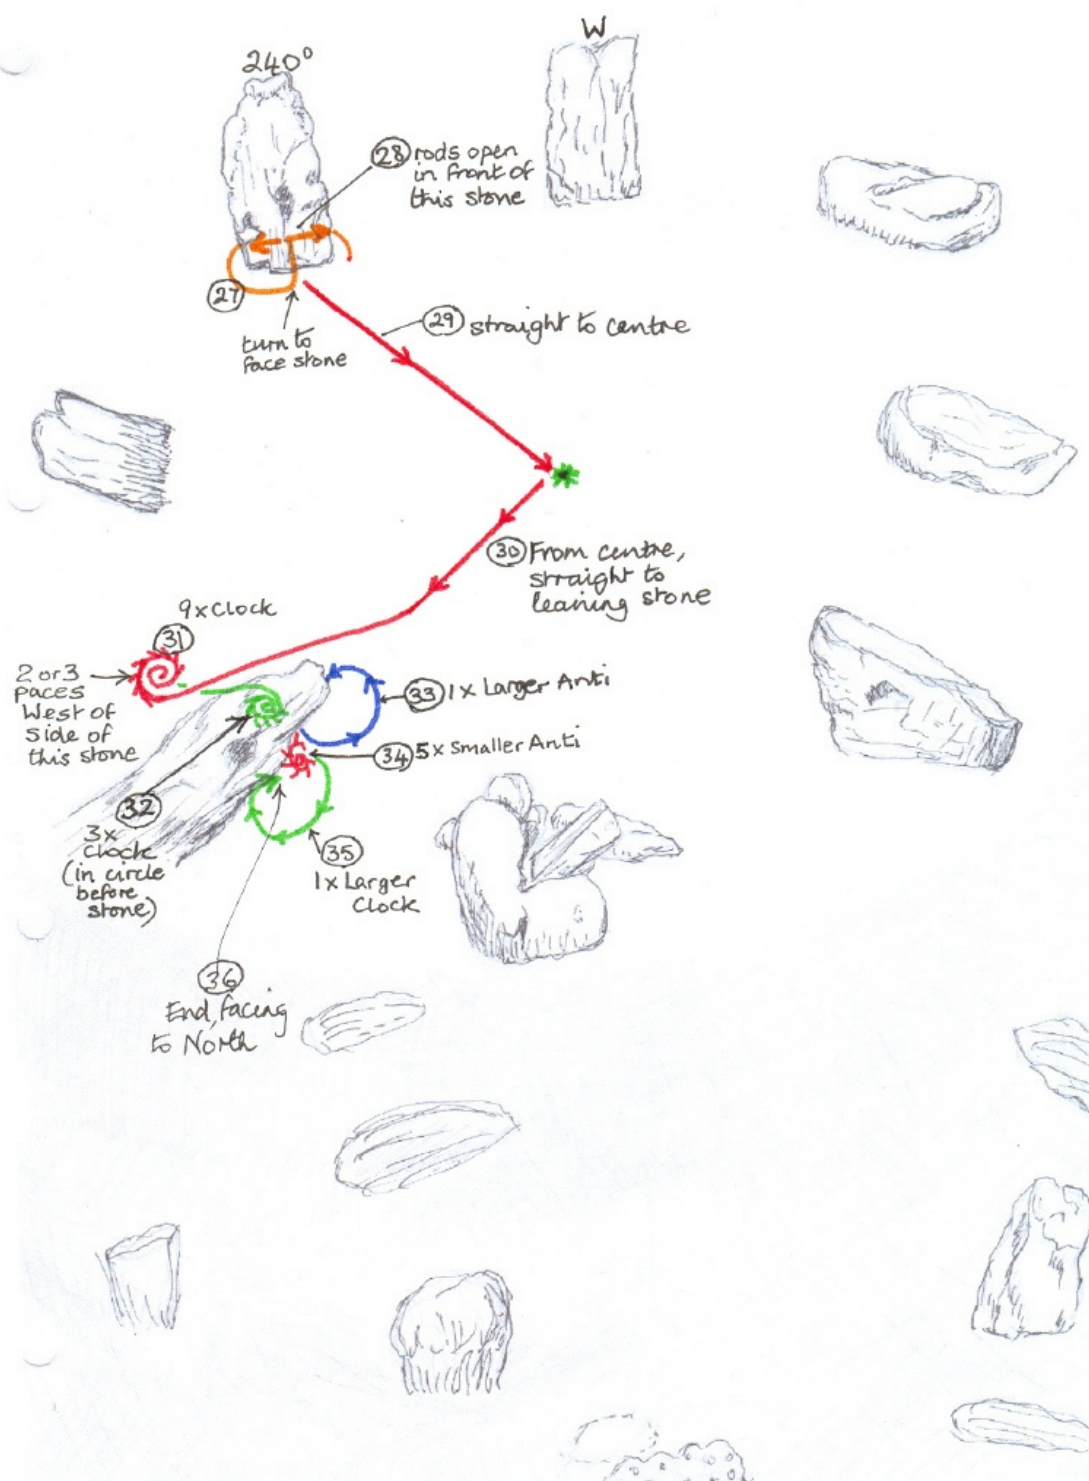 W
240°
28 rods open
in front of
this stone
27
turn to
face stone
29 straight to centre
30 From centre,
straight to
leaning stone
9xClock
31
2 or 3
paces
West of
side of
this stone
33 1x Larger Anti
34 5x Smaller Anti
32
3x
Clock
(in circle
before
stone)
35
1x Larger
Clock
36
End, facing
to North